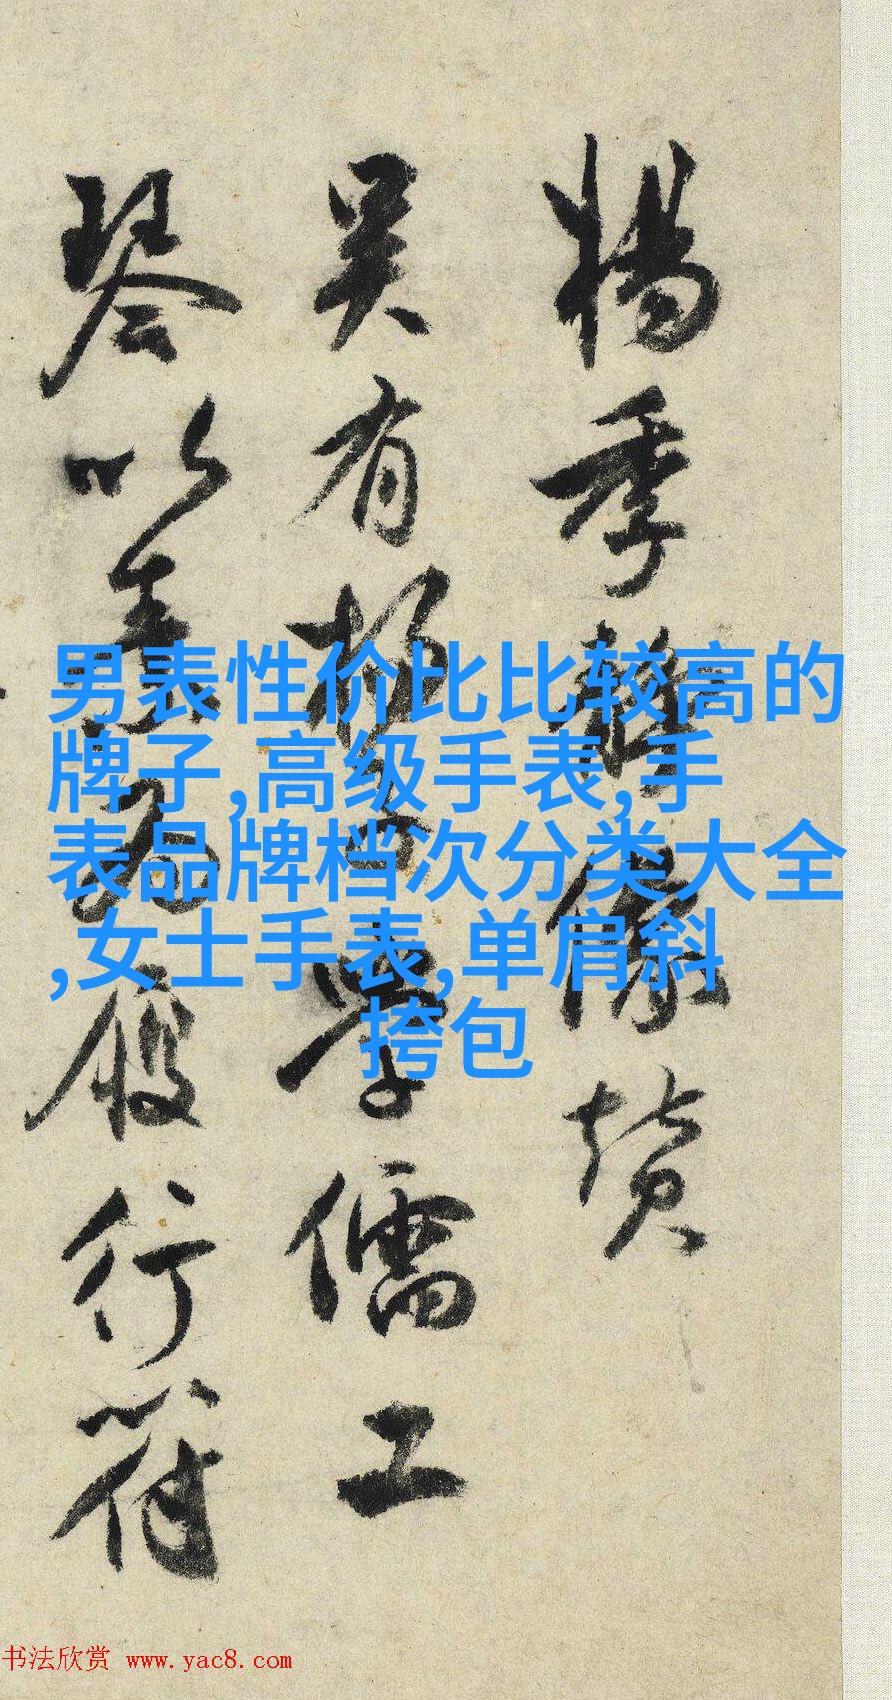 楊季靜像贊
吴有楊子學儒工
琴以孝爲履行符
男表性价比比较高的
牌子,高级手表,手
表品牌档次分类大全
,女士手表,单肩斜
挎包
书法欣赏 www.yac8.com